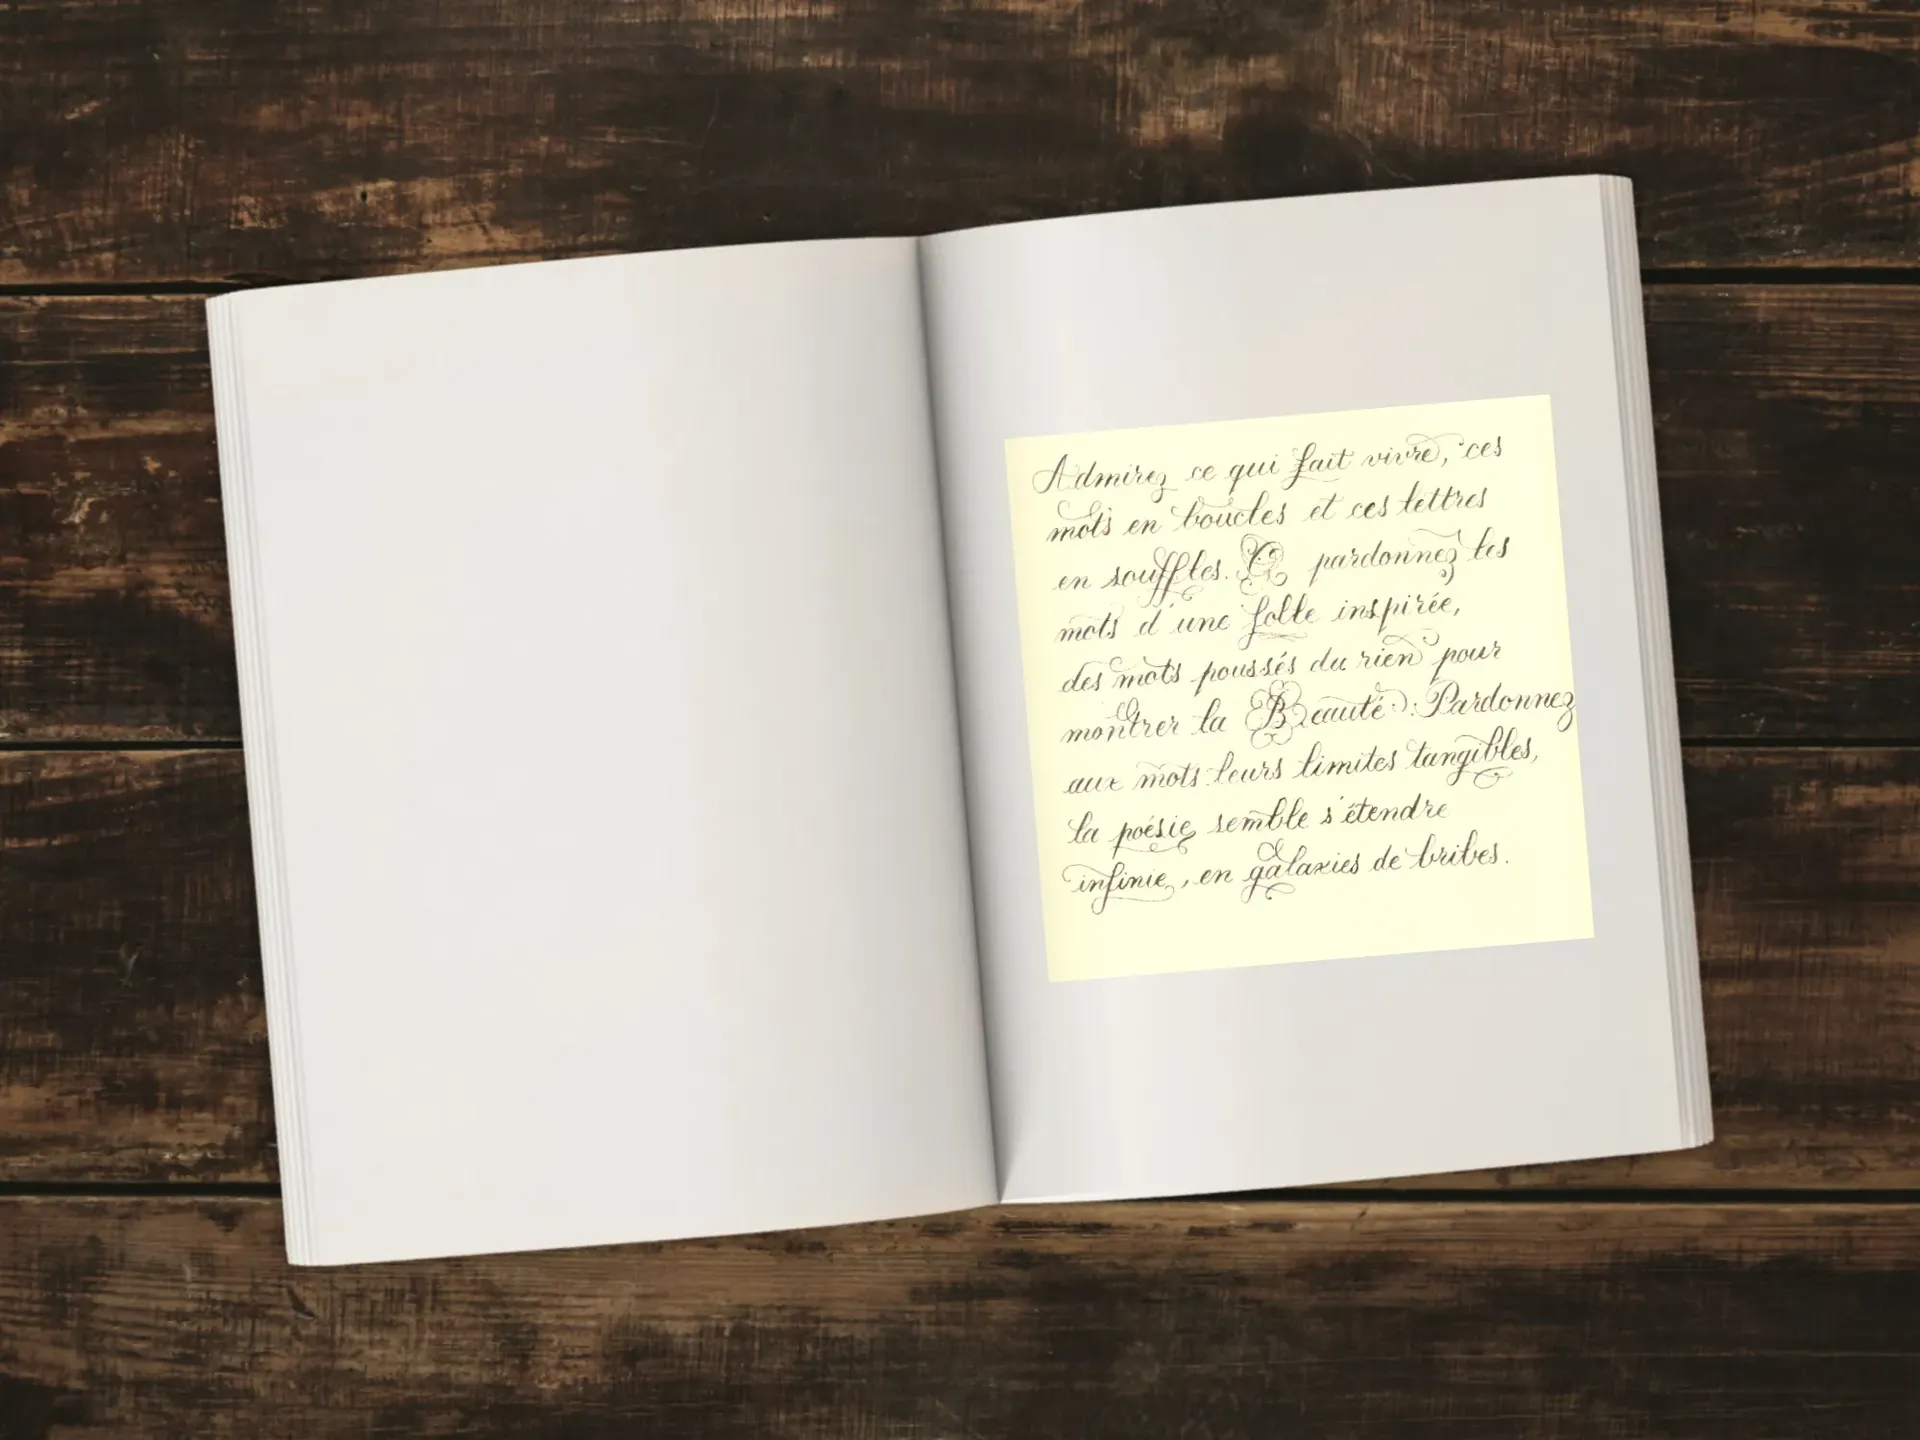 Admirez ce qui fait vivre, ces
mots en boucles et ces lettres
en souffles. O pardonnez les
mots d'une folle inspirée,
des mots poussés du rien pour
montrer la Beauté. Pardonnez
aux mots leurs limites tangibles,
la poésie semble s'étendre
infinie, en galaxies de bribes.